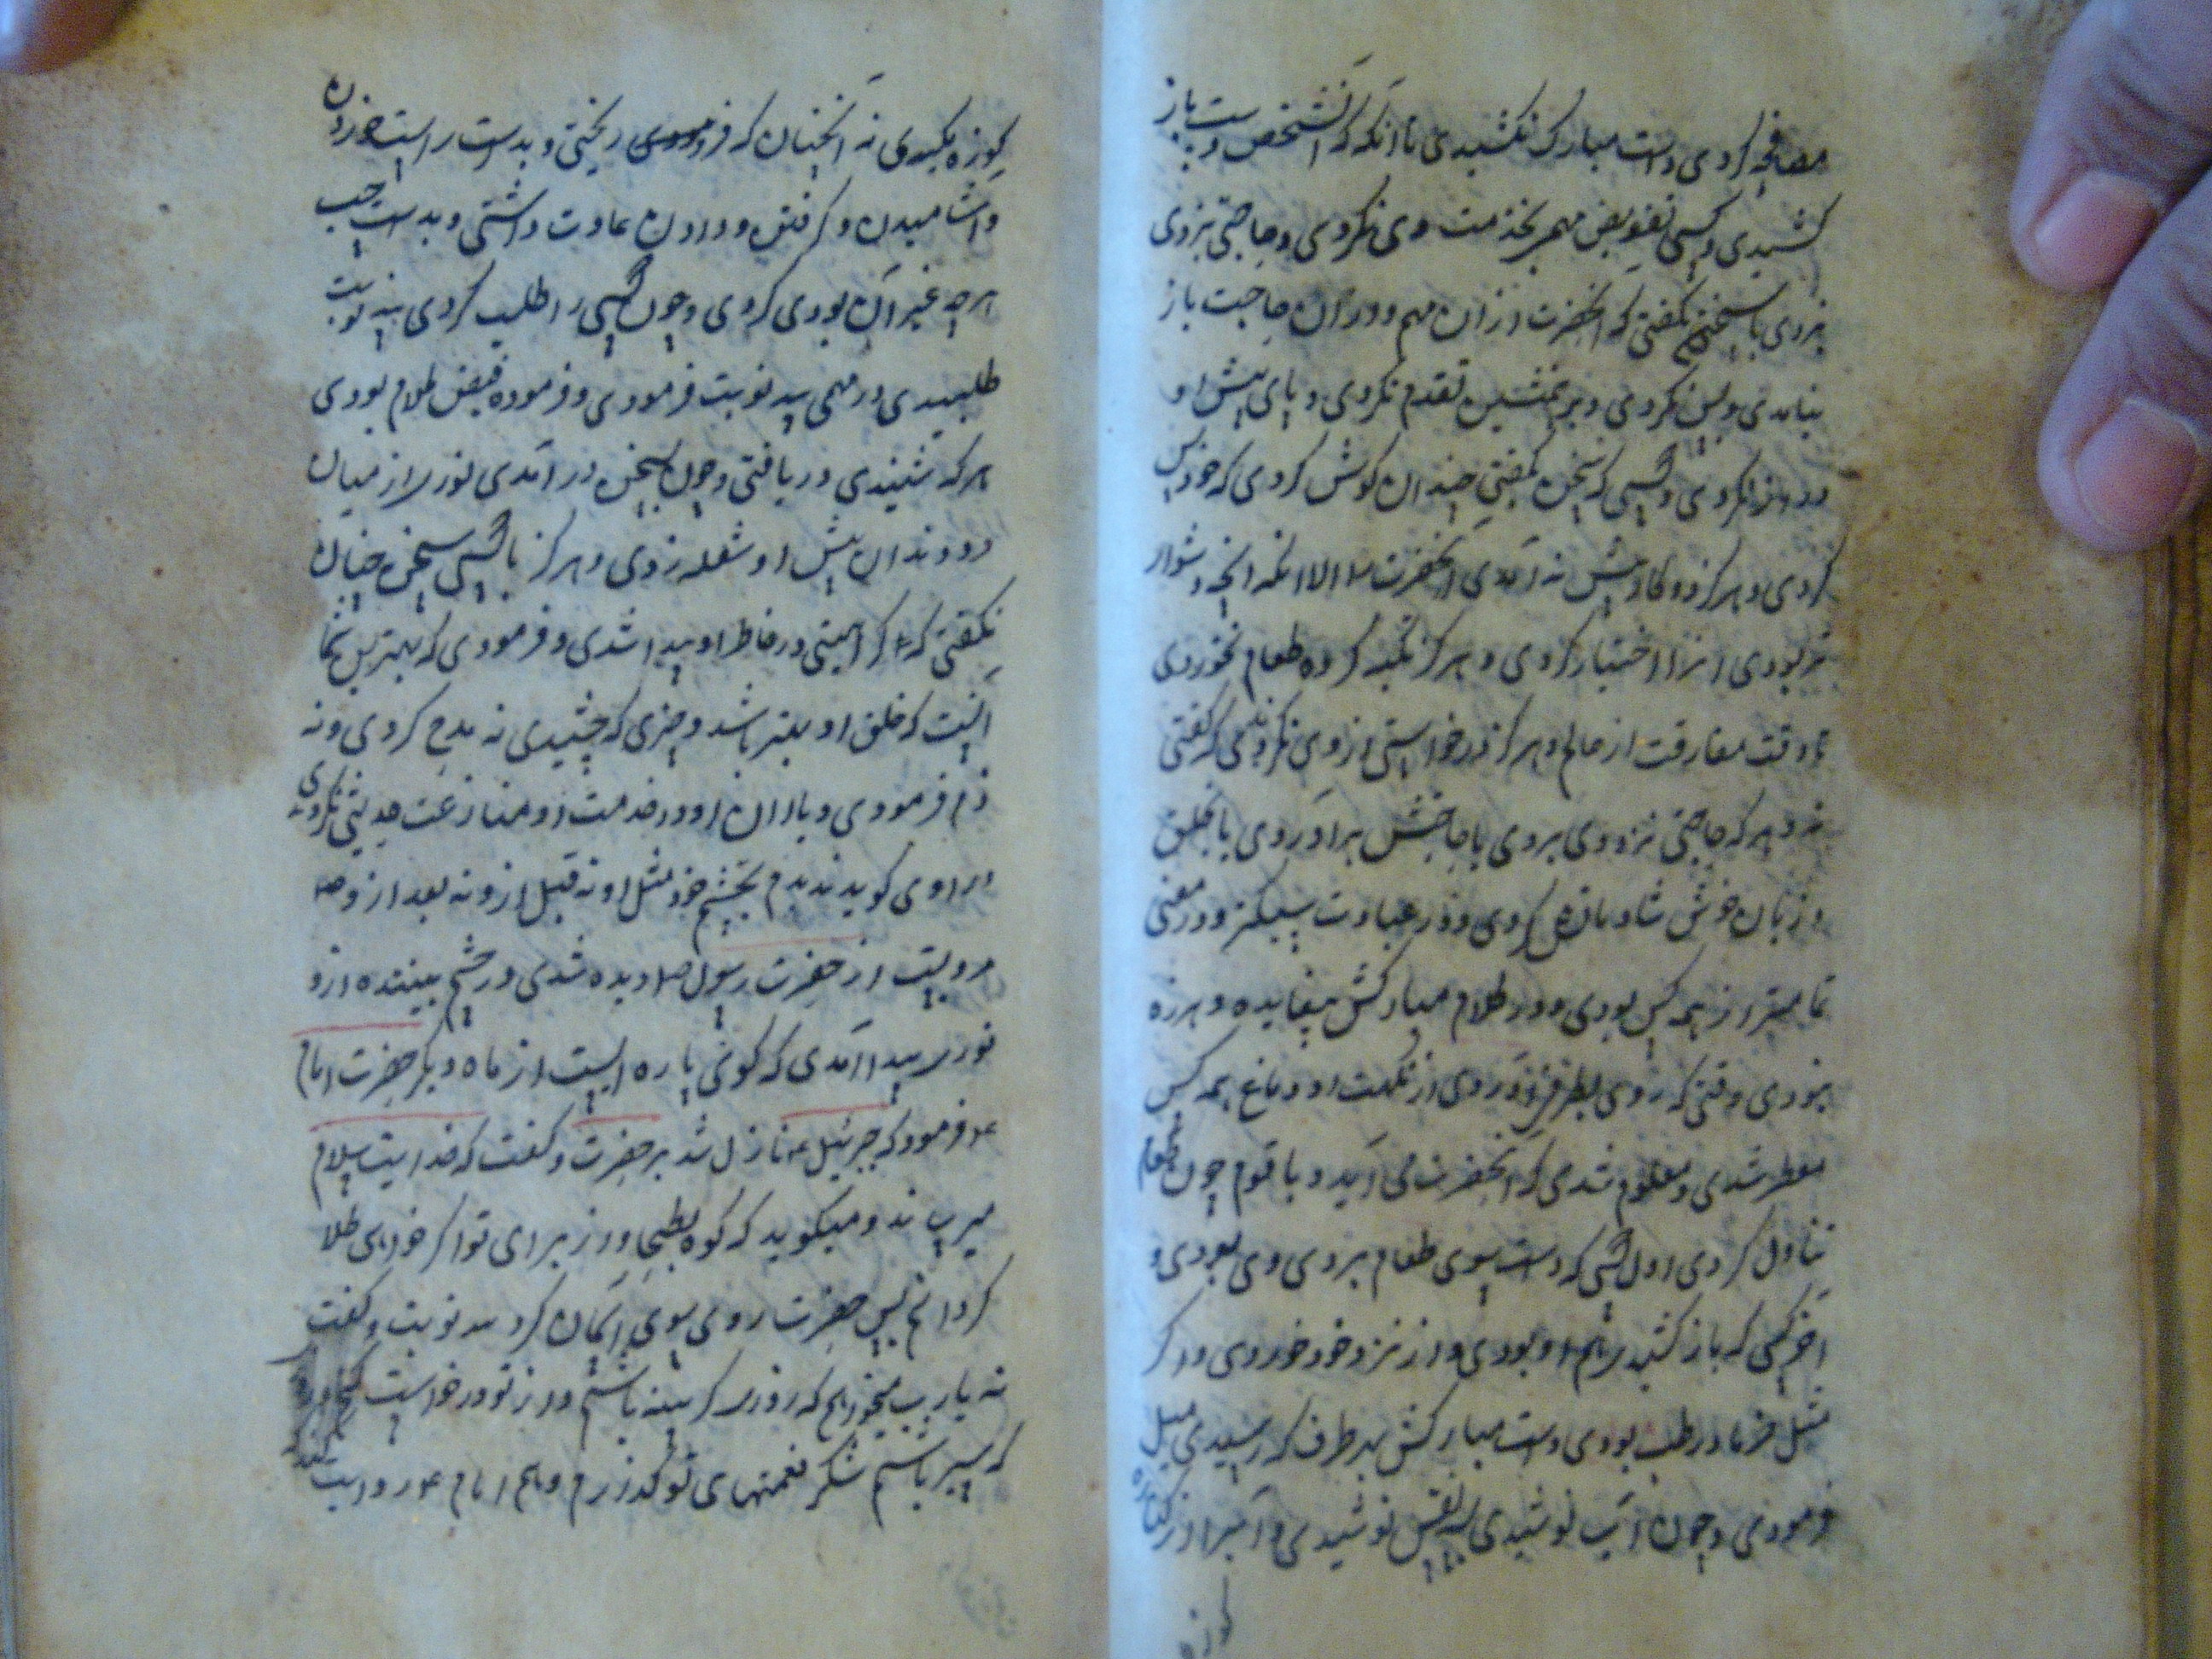 مصافحه کردی دست مبارک نکشیدی تا آنکه که آنشخص دست باز
کشیدی و کسی تفویض مهم بخدمت وی نکردی و حاجتی نزدی
نزدی یا سخن نگفتی که آنحضرت از آن مهم و در آن حاجت باز
نیامدی و پس نکردی و بر همنشین تقدم نکردی و پای پیش او
دراز نکردی و کسی که سخن گفتی چندان گوش کردی که خود بس
کردی و هرگز دو کار پیش نه آمدی آنحضرت را الا آنکه آنچه دشوار
تر بودی آنرا اختیار کردی و هرگز تکیه کرده طعام نخوردی
تا وقت مفارقت از عالم و هرگز درخواستی از وی نکردندی که گفتی
نه و هر که حاجتی نزد وی بردی یا حاجتش برآوردی یا بخلق
و زبان خوش شادمان کردی و در عبادت سبکتر و در معنی
تمامتر از همه کس بودی و در کلام مبارکش بیفایده و هرزه
نبودی وقتی که روی بطرفی آوردی از نکهت او دماغ همه کس
معطر شدی و معلوم شدی که آنحضرت می آید و با قوم چون طعام
تناول کردی اول کسی که دست بسوی طعام بردی وی بودی و
آخر کسی که باز کشیدی هم او بودی و از نزد خود خوردی و اگر
مثل خرما و رطب بودی دست مبارکش بهر طرف که رسیدی میل
فرمودی و چون آب نوشیدی بسه نفس نوشیدی و آب را از کناره
کوزه
کوزه مکیدی نه آنچنان که فرو ریختی و بدست راست خوردن
و آشامیدن و گرفتن و دادن عادت داشتی و بدست چپ
هر چه غیر آن بودی کردی و چون کسی را طلب کردی بسه نوبت
طلبیدی در مهمی سه نوبت فرمودی و فرموده فیض کلام بودی
هر که شنیدی دریافتی و چون بسخن در آمدی نوری از میان
دو دندان پیش او شعله زدی و هرگز با کسی سخن چنان
نگفتی که کراهیتی در خاطر او پیدا شدی و فرمودی که بهترین شما
آنست که خلق او بهتر باشد و چیزی که چشیدی نه مدح کردی و نه
ذم فرمودی و یاران او در خدمت او منازعت حدیثی نکردندی
راوی گوید ندیدم بچشم خود مثل او نه قبل ازو نه بعد ازو ص
مرویست از حضرت رسول ص دیده شدی در چشم بیننده ازو
نوری پیدا آمدی که گوئی پاره ایست از ماه و دیگر حضرت امام
ع فرمود که جبرئیل ع نازل شد بر حضرت و گفت که خدایت سلام
میرساند و میگوید که کوه بطحا و زر برای تو اگر خواهی طلا
گردانم پس حضرت روی بسوی آسمان کرد سه نوبت و گفت
نه یا رب میخواهم که روزی گرسنه باشم و از تو درخواست کنم و روزی
که سیر باشم شکر نعمتهای تو گذارم و هم امام ع روایت